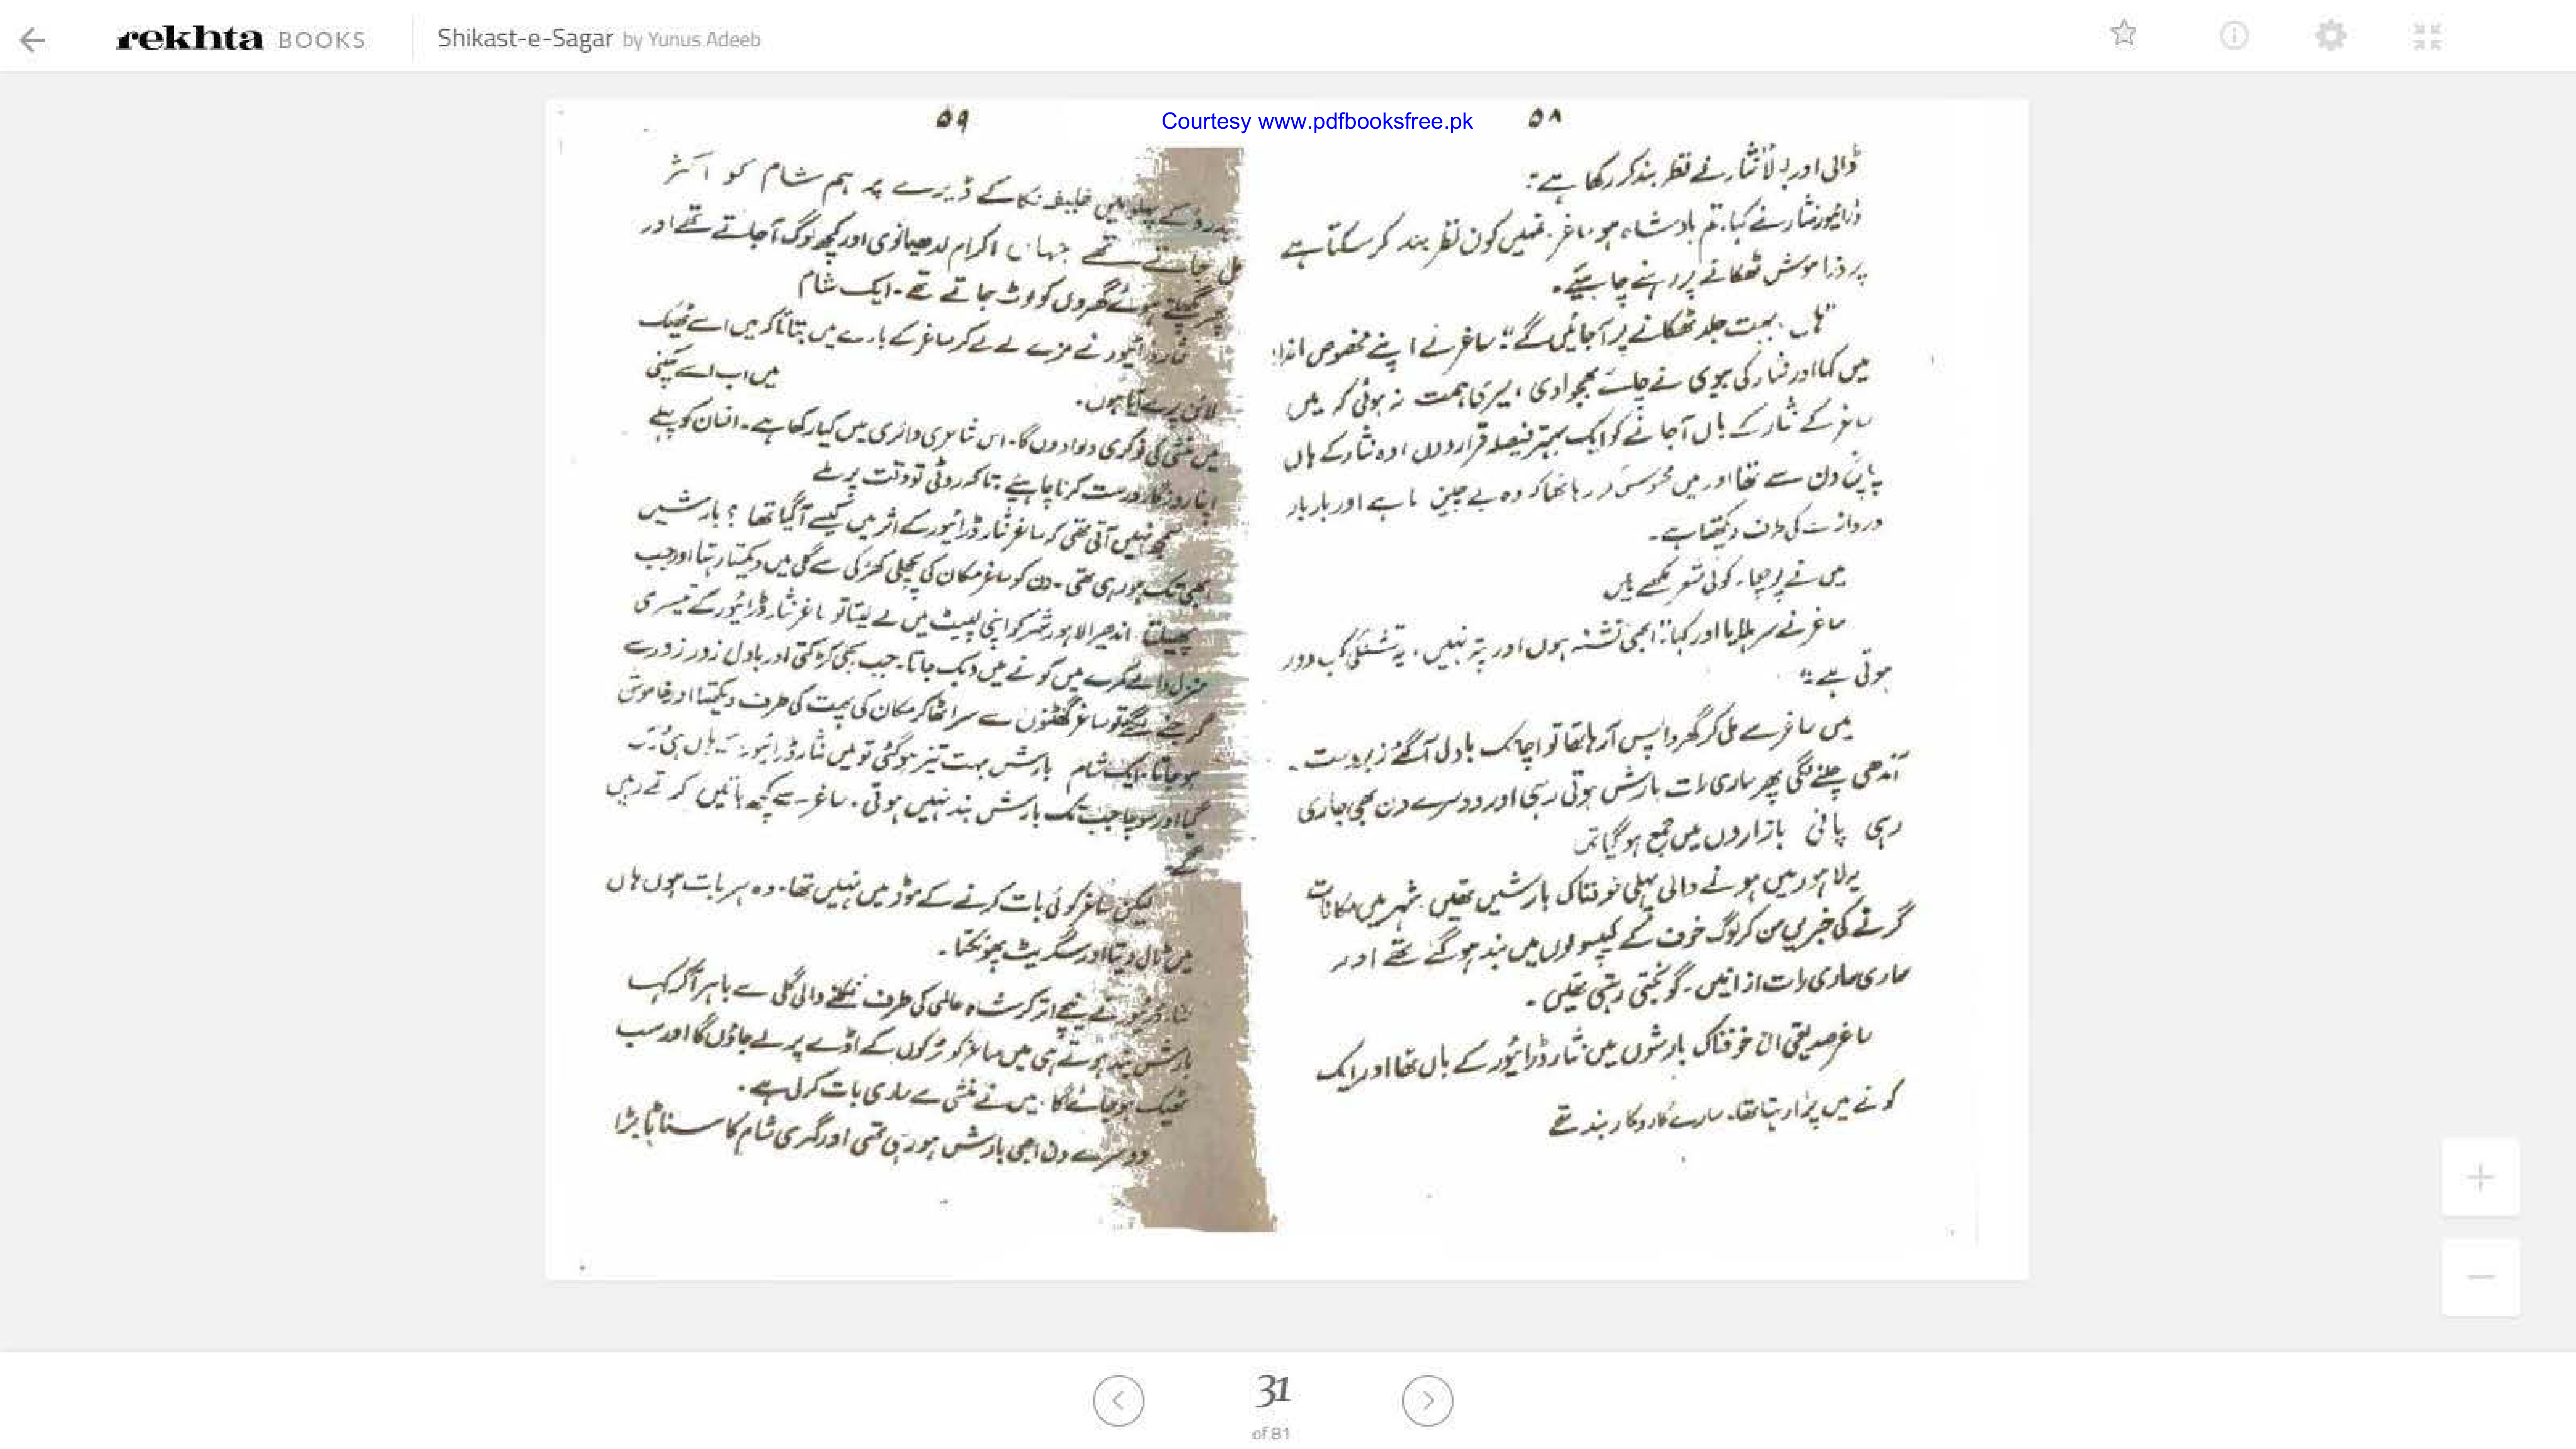 rekhta BOOKS
Shikast-e-Sagar by Yunus Adeeb
Courtesy www.pdfbooksfree.pk
۵۸
ڈالی اور نثار نے نظر بند کر رکھا ہے:
ڈرائیور نثار نے کہا. تم بادشاہ ہو ساغر. تمہیں کون نظر بند کر سکتا ہے
پر ذرا ہوش ٹھکانے پر رہنے چاہئیے۔
"ہاں. بہت جلد ٹھکانے پر آ جائیں گے" ساغر نے اپنے مخصوص انداز
میں کہا اور نثار کی بیوی نے چائے بھجوا دی، میری ہمت نہ ہوئی کہ میں
ساغر کے نثار کے ہاں آ جانے کو ایک بہتر فیصلہ قرار دوں اوہ نثار کے ہاں
دن سے تھا اور میں محسوس کر رہا تھا کہ وہ بے چین سا ہے اور بار بار
دروازے کی طرف دیکھتا ہے۔
میں نے پوچھا. کوئی شعر لکھے ہیں
ساغر نے سر ہلایا اور کہا" ابھی تشنہ ہوں اور پتہ نہیں، یہ تشنگی کب دور
ہوتی ہے"
میں ساغر سے مل کر گھر واپس آ رہا تھا تو اچانک بادل آ گئے زبردست
آندھی چلنے لگی پھر ساری رات بارش ہوتی رہی اور دوسرے دن بھی جاری
رہی پانی بازاروں میں جمع ہو گیا تھا
یہ لاہور میں ہونے والی پہلی خوفناک بارشیں تھیں. شہر میں مکانات
گرنے کی خبریں سن کر لوگ خوف کے کیپسولوں میں بند ہو گئے تھے اور
ساری ساری رات اذانیں۔ گونجتی رہتی تھیں۔
ساغر صدیقی ان خوفناک بارشوں میں نثار ڈرائیور کے ہاں تھا اور ایک
کونے میں پڑا رہتا تھا۔ سارے کاروبار بند تھے
۵۹
کے پہلو میں خلیفہ نکا کے ڈیرے پر ہم شام کو اکثر
مل جاتے تھے جہاں اکرام لدھیانوی اور کچھ لوگ آ جاتے تھے اور
پھر ہوئے گھروں کو لوٹ جاتے تھے۔ ایک شام
نثار ڈرائیور نے مزے لے لے کر ساغر کے بارے میں بتاتا کہ میں اسے ٹھیک
لائن پر لے آیا ہوں۔ میں اب اسے کمپنی
میں منشی کی نوکری دلوا دوں گا۔ اس شاعری وائری میں کیا رکھا ہے۔ انسان کو پہلے
اپنا روزگار درست کرنا چاہئیے تاکہ روٹی تو وقت پر ملے
سمجھ نہیں آتی تھی کہ ساغر نثار ڈرائیور کے اثر میں کیسے آ گیا تھا ؟ بارشیں
ابھی تک ہو رہی تھی۔ دن کو ساغر مکان کی پچھلی کھڑکی سے گلی میں دیکھتا رہتا اور جب
پھیلتا اندھیرا لاہور شہر کو اپنی لپیٹ میں لے لیتا تو ساغر نثار ڈرائیور کے تیسری
منزل والے کمرے میں کونے میں دبک جاتا۔ جب بجلی کڑکتی اور بادل زور زور سے
گرجنے لگتے تو ساغر گھٹنوں سے سر اٹھا کر مکان کی چھت کی طرف دیکھتا اور خاموش
ہو جاتا۔ ایک شام بارش بہت تیز ہو گئی تو میں نثار ڈرائیور
گیا اور سوچا جب تک بارش بند نہیں ہوتی۔ ساغر سے کچھ باتیں کرتے رہیں
گے۔
لیکن ساغر کوئی بات کرنے کے موڈ میں نہیں تھا۔ وہ ہر بات ہوں ہاں
میں ٹال دیتا اور سگریٹ پھونکتا۔
نے نیچے اتر کر شاہ عالمی کی طرف نکلنے والی گلی سے باہر آ کر کہا
بارش بند ہوتے ہی میں ساغر کو ٹرکوں کے اڈے پر لے جاؤں گا اور سب
ٹھیک ہو جائے گا۔ میں نے منشی سے ساری بات کر لی ہے۔
دوسرے دن ابھی بارش ہو رہی تھی اور گہری شام کا سناٹا بڑا
31
of 81